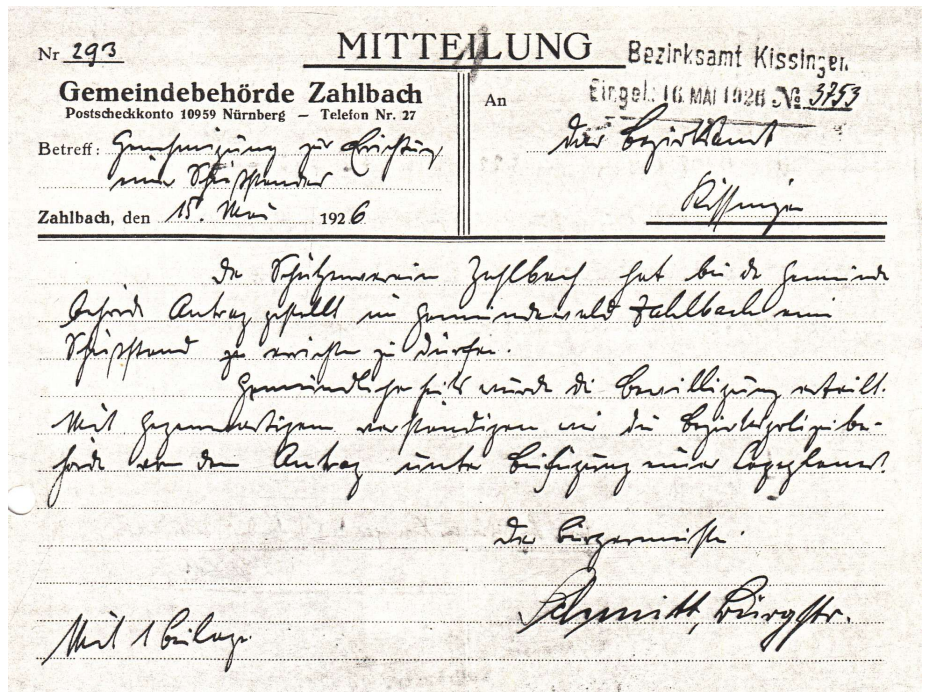 Nr. 293
MITTEILUNG
Bezirksamt Kissingen
Eingel. 16. MAI 1926 No 3753
Gemeindebehörde Zahlbach
Postscheckkonto 10959 Nürnberg — Telefon Nr. 27
An
das Bezirksamt
Kissingen
Betreff: Genehmigung zur Errichtung
eines Schießstandes
Zahlbach, den 15. Mai 1926
Der Schützenverein Zahlbach hat bei der Gemeinde
behörde Antrag gestellt im Gemeindewald Zahlbach einen
Schießstand zu errichten zu dürfen.
Gemeindlicherseits wurde die Bewilligung erteilt.
Mit Gegenwärtigem verständigen wir die Bezirkspolizeibe-
hörde von dem Antrag unter Beifügung eines Lageplanes.
Der Bürgermeister
Schmitt, Bürgstr.
Mit 1 Beilage